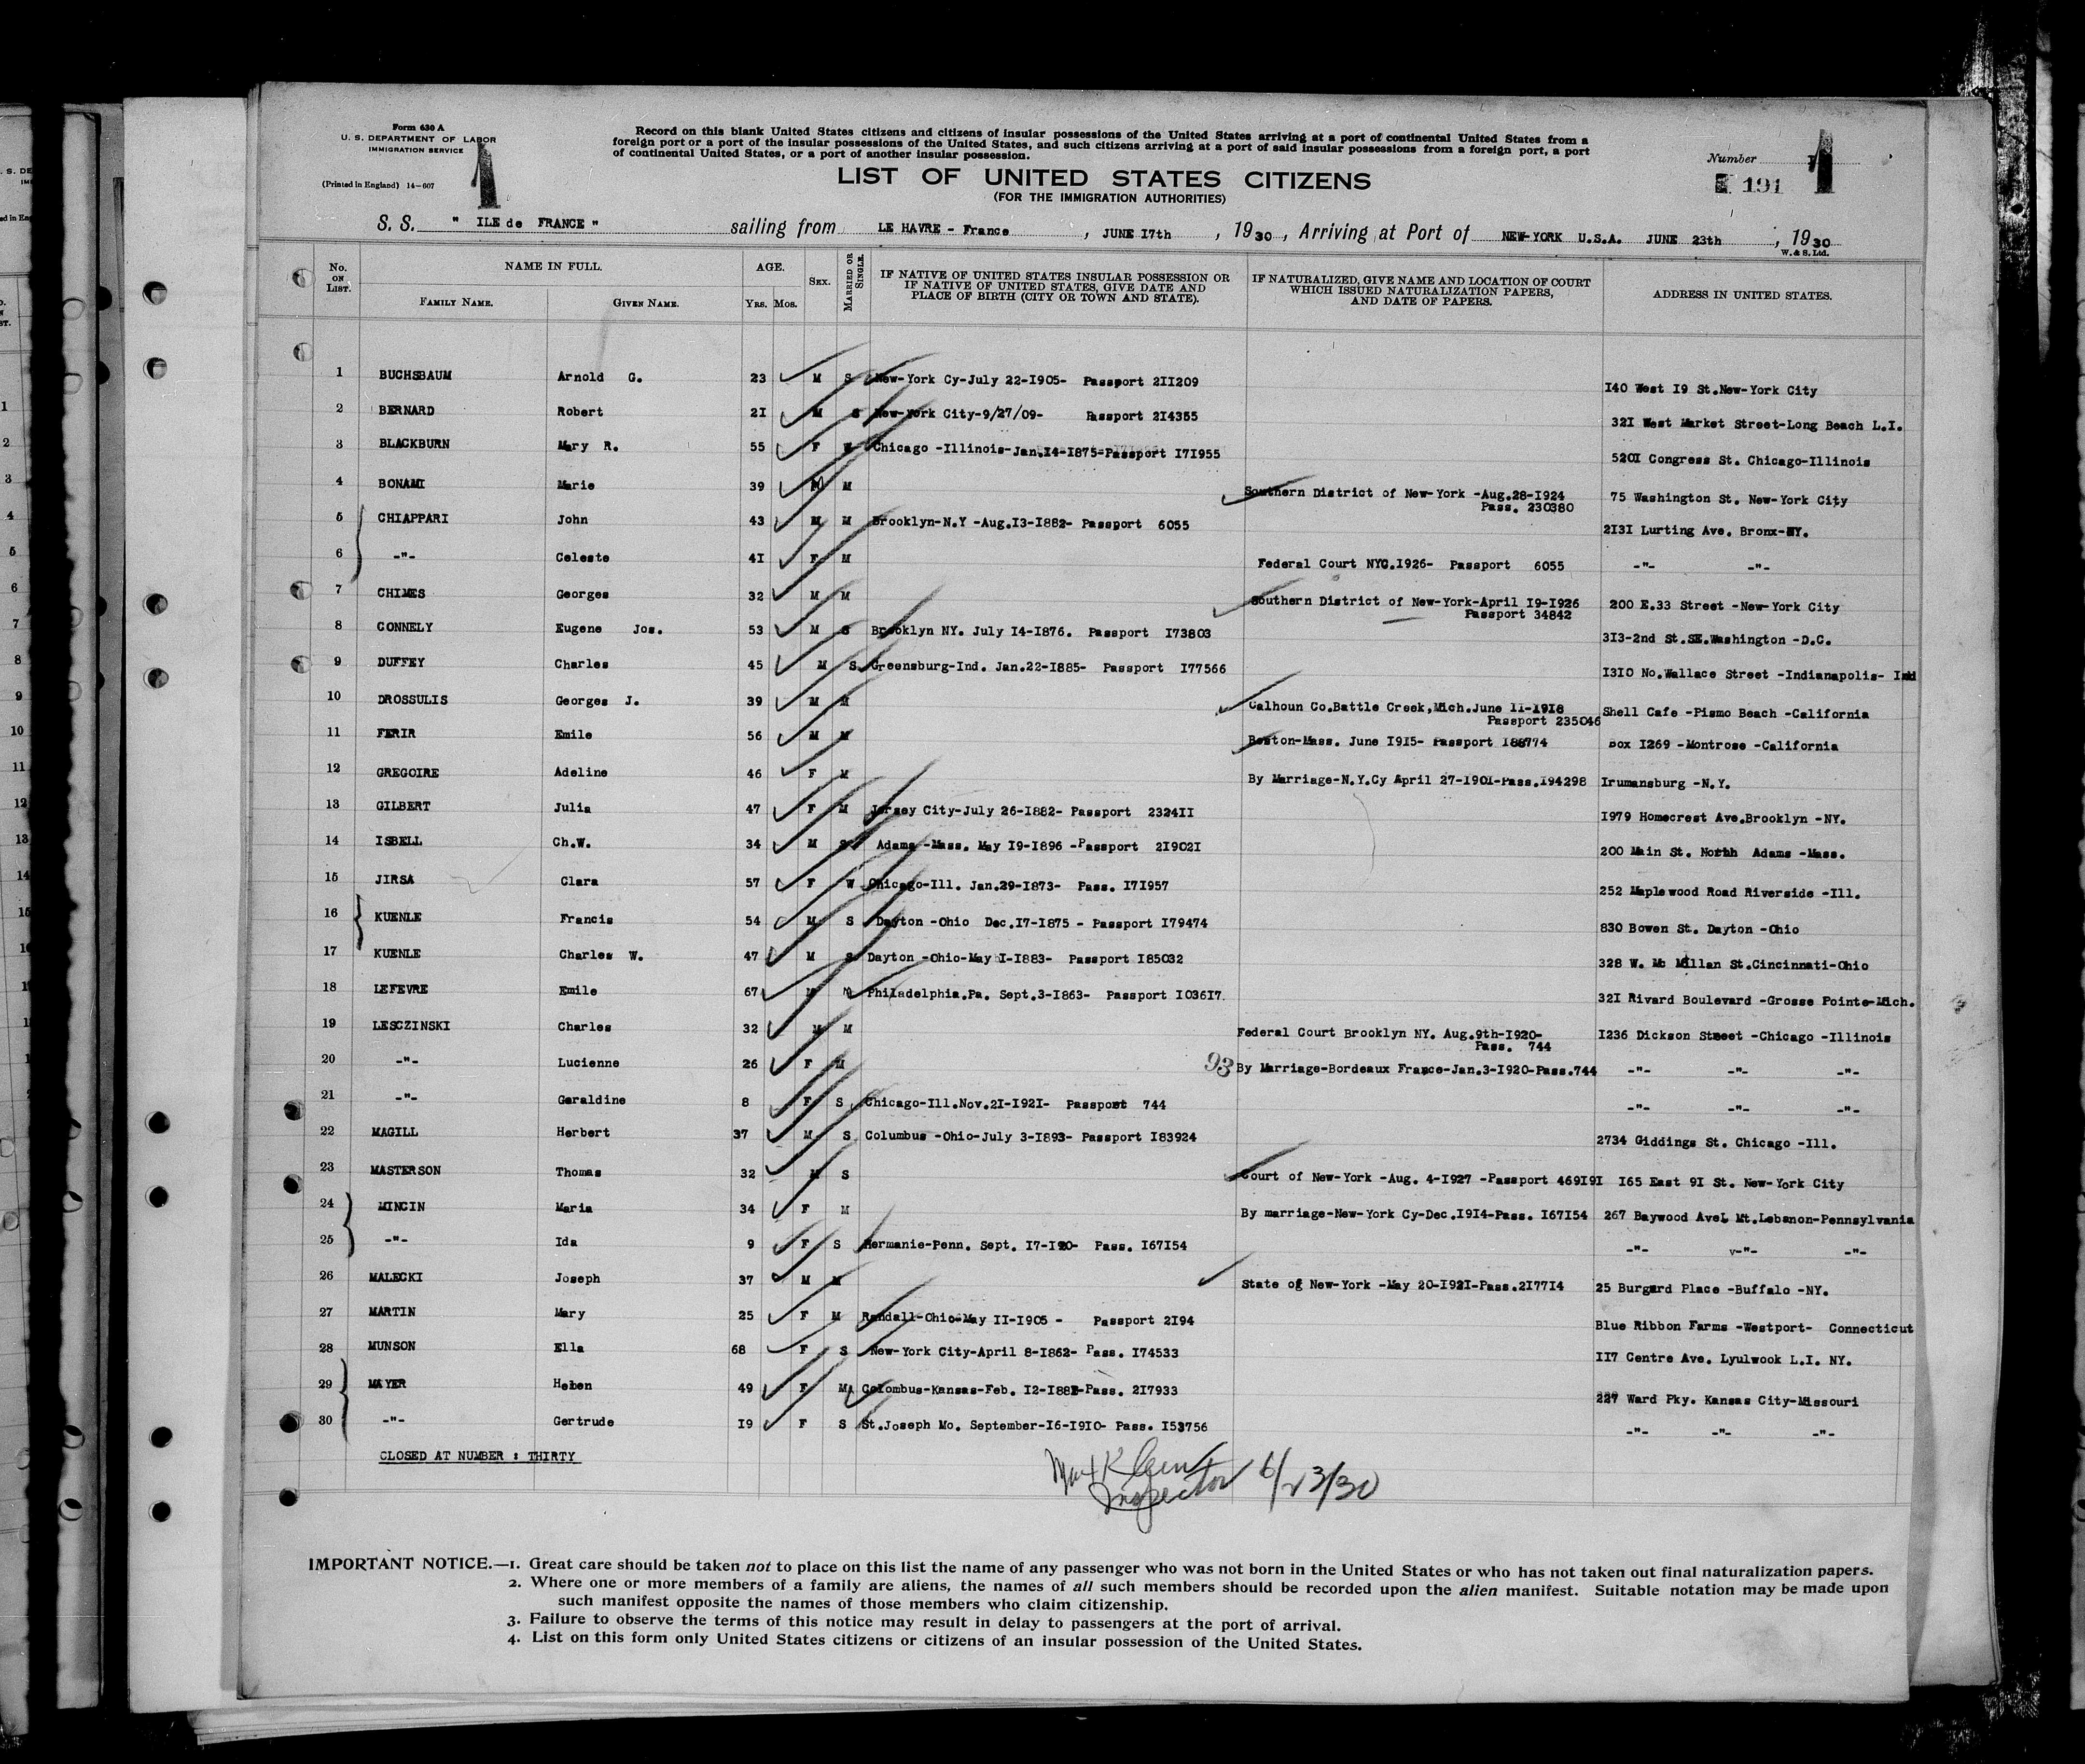 Form 630 A
U. S. DEPARTMENT OF LABOR
IMMIGRATION SERVICE
(Printed in England) 14—607
1
Record on this blank United States citizens and citizens of insular possessions of the United States arriving at a port of continental United States from a
foreign port or a port of the insular possessions of the United States, and such citizens arriving at a port of said insular possessions from a foreign port, a port
of continental United States, or a port of another insular possession.
LIST OF UNITED STATES CITIZENS
(FOR THE IMMIGRATION AUTHORITIES)
Number 1
191
S. S. " ILE de FRANCE " sailing from LE HAVRE - France , JUNE I7th , 1930 , Arriving at Port of NEW-YORK U.S.A. JUNE 23th , 1930
W. & S. Ltd.
No. ON LIST. NAME IN FULL. AGE. SEX. MARRIED OR SINGLE. IF NATIVE OF UNITED STATES INSULAR POSSESSION OR IF NATIVE OF UNITED STATES, GIVE DATE AND PLACE OF BIRTH (CITY OR TOWN AND STATE). IF NATURALIZED, GIVE NAME AND LOCATION OF COURT WHICH ISSUED NATURALIZATION PAPERS, AND DATE OF PAPERS. ADDRESS IN UNITED STATES.
FAMILY NAME. GIVEN NAME. YRS. MOS.
1 BUCHSBAUM Arnold G. 23 M S New-York Cy-July 22-I905- Passport 2II209 I40 West I9 St.New-York City
2 BERNARD Robert 2I M S New-York City-9/27/09- Passport 2I4355 32I West Market Street-Long Beach L.I.
3 BLACKBURN Mary R. 55 F W Chicago -Illinois-Jan.I4-I875-Passport I7I955 520I Congress St. Chicago-Illinois
4 BONAMI Marie 39 M M Southern District of New-York -Aug.28-I924 Pass. 230380 75 Washington St. New-York City
5 CHIAPPARI John 43 M M Brooklyn-N.Y -Aug.I3-I882- Passport 6055 2I3I Lurting Ave. Bronx-NY.
6 -"- Celeste 4I F M Federal Court NYC.I926- Passport 6055 -"- -"-
7 CHIMES Georges 32 M M Southern District of New-York-April I9-I926 Passport 34842 200 E.33 Street -New-York City
8 CONNELY Eugene Jos. 53 M S Brooklyn NY. July I4-I876. Passport I73803 3I3-2nd St.SE.Washington -D.C.
9 DUFFEY Charles 45 M S Greensburg-Ind. Jan.22-I885- Passport I77566 I3IO No.Wallace Street -Indianapolis- Ind
10 DROSSULIS Georges J. 39 M M Calhoun Co.Battle Creek,Mich.June II-I9I8 Passport 235046 Shell Cafe -Pismo Beach -California
11 FERIR Emile 56 M M Boston-Mass. June I9I5- Passport I88774 Box I269 -Montrose -California
12 GREGOIRE Adeline 46 F M By Marriage-N.Y.Cy April 27-I90I-Pass.I94298 Irumansburg -N.Y.
13 GILBERT Julia 47 F M Jersey City-July 26-I882- Passport 2324II I979 Homecrest Ave.Brooklyn -NY.
14 ISBELL Ch.W. 34 M S Adams -Mass. May I9-I896 -Passport 2I902I 200 Main St. North Adams -Mass.
15 JIRSA Clara 57 F W Chicago-Ill. Jan.29-I873- Pass. I7I957 252 Maplewood Road Riverside -Ill.
16 KUENLE Francis 54 M S Dayton -Ohio Dec.I7-I875 - Passport I79474 830 Bowen St. Dayton -Ohio
17 KUENLE Charles W. 47 M S Dayton -Ohio-May I-I883- Passport I85032 328 W. Mc Millan St.Cincinnati-Ohio
18 LEFEVRE Emile 67 M M Philadelphia.Pa. Sept.3-I863- Passport I036I7 32I Rivard Boulevard -Grosse Pointe-Mich.
19 LESCZINSKI Charles 32 M M Federal Court Brooklyn NY. Aug.9th-I920- Pass. 744 I236 Dickson Street -Chicago -Illinois
20 -"- Lucienne 26 F M 93 By Marriage-Bordeaux France-Jan.3-I920-Pass.744 -"- -"- -"-
21 -"- Geraldine 8 F S Chicago-Ill.Nov.2I-I92I- Passport 744 -"- -"- -"-
22 MAGILL Herbert 37 M S Columbus -Ohio-July 3-I893- Passport I83924 2734 Giddings St. Chicago -Ill.
23 MASTERSON Thomas 32 M S Court of New-York -Aug. 4-I927 -Passport 469I9I I65 East 9I St. New-York City
24 MINCIN Maria 34 F M By marriage-New-York Cy-Dec.I9I4-Pass. I67I54 267 Baywood Ave. Mt.Lebanon-Pennsylvania
25 -"- Ida 9 F S Hermanie-Penn. Sept. I7-I920- Pass. I67I54 -"- -"- -"-
26 MALECKI Joseph 37 M M State of New-York -May 20-I92I-Pass.2I77I4 25 Burgard Place -Buffalo -NY.
27 MARTIN Mary 25 F M Randall-Ohio-May II-I905 - Passport 2I94 Blue Ribbon Farms -Westport- Connecticut
28 MUNSON Ella 68 F S New-York City-April 8-I862- Pass. I74533 II7 Centre Ave. Lyulwook L.I. NY.
29 MAYER Helen 49 F M Colombus-Kansas-Feb. I2-Pass. 2I7933 227 Ward Pky. Kansas City-Missouri
30 -"- Gertrude I9 F S St.Joseph Mo. September-I6-I9IO- Pass. I53756 -"- -"- -"-
CLOSED AT NUMBER : THIRTY
Max Klein
Inspector 6/23/30
IMPORTANT NOTICE.—1. Great care should be taken not to place on this list the name of any passenger who was not born in the United States or who has not taken out final naturalization papers.
2. Where one or more members of a family are aliens, the names of all such members should be recorded upon the alien manifest. Suitable notation may be made upon
such manifest opposite the names of those members who claim citizenship.
3. Failure to observe the terms of this notice may result in delay to passengers at the port of arrival.
4. List on this form only United States citizens or citizens of an insular possession of the United States.